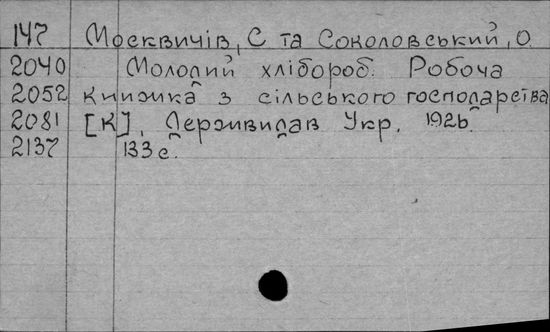 147 Москвичів, С та Соколовський, О.
2040 Молодий хлібороб. Робоча
2052 книжка з сільського господарства
2081 [К], Держвидав Укр, 1926.
2137 133 с.